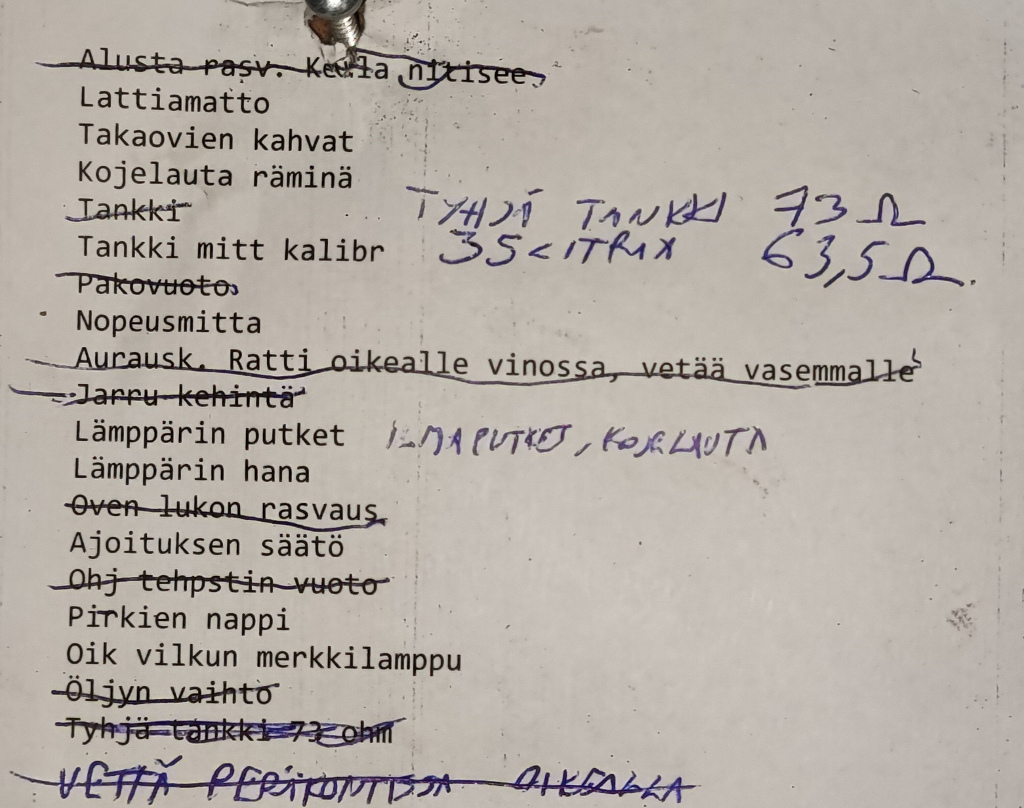 Alusta rasv. Keula nitisee.
Lattiamatto
Takaovien kahvat
Kojelauta räminä
Tankki TYHJÄ TANKKI 73 Ω
Tankki mitt kalibr 35 LITRAA 63,5 Ω.
Pakovuoto
Nopeusmitta
Aurausk. Ratti oikealle vinossa, vetää vasemmalle
Jarru kehintä
Lämppärin putket ILMAPUTKET, KOJELAUTA
Lämppärin hana
Oven lukon rasvaus
Ajoituksen säätö
Ohj tehpstin vuoto
Pirkien nappi
Oik vilkun merkkilamppu
Öljyn vaihto
Tyhjä tankki 73 ohm
VETTÄ PERÄKONTISSA OIKEALLA